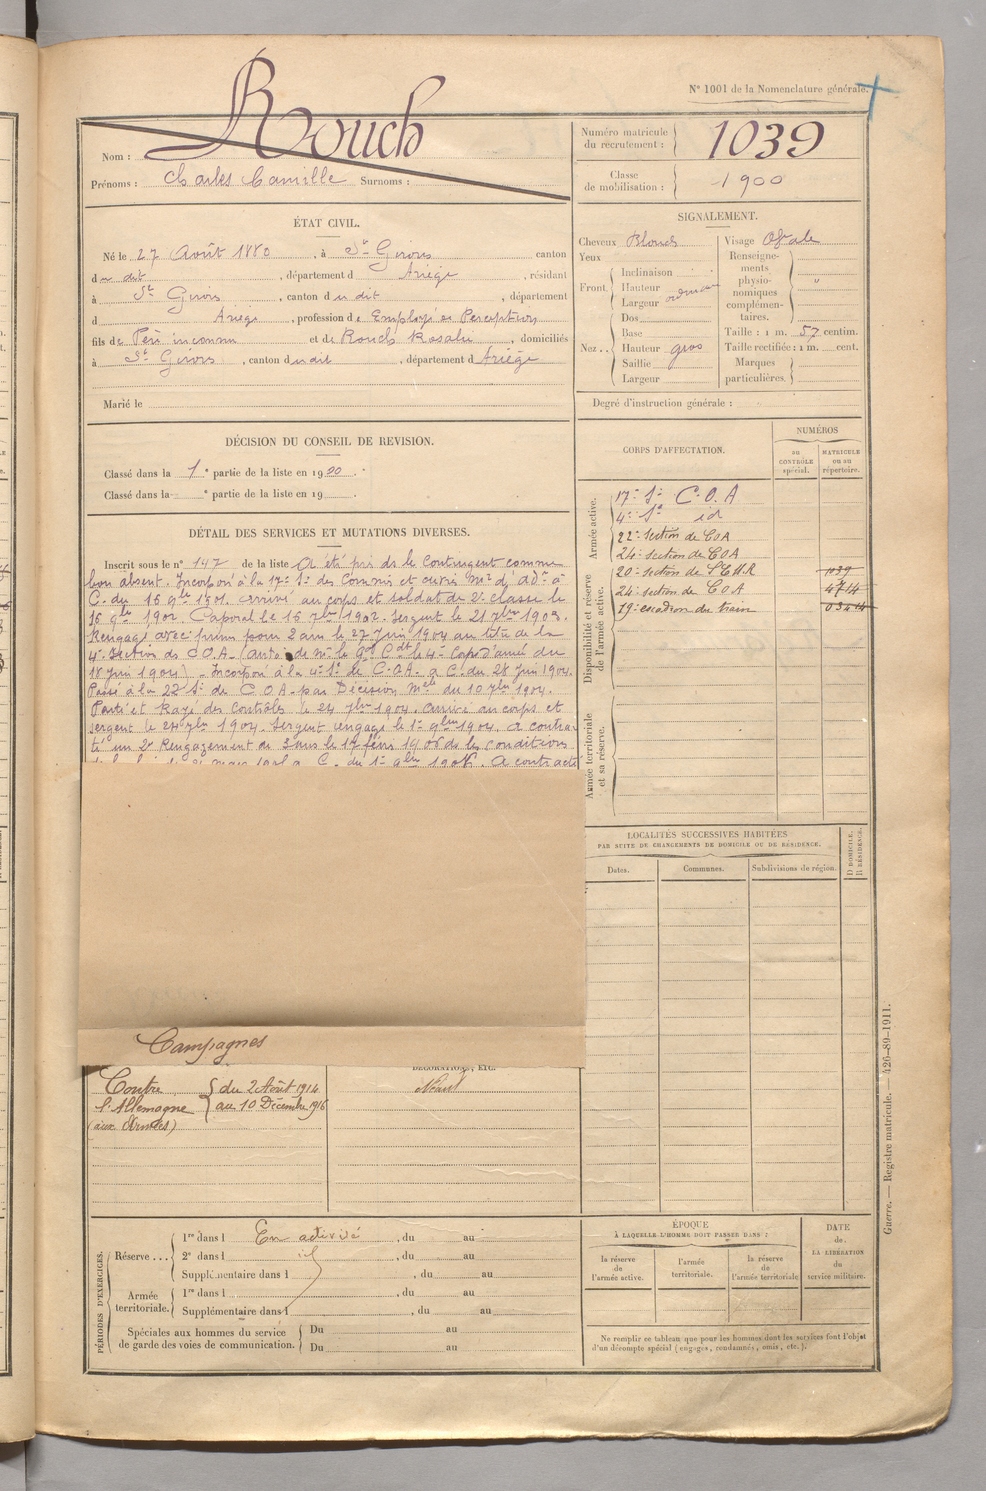 N° 1001 de la Nomenclature générale.
Nom : Rouch
Prénoms : Charles Camille Surnoms :
Numéro matricule du recrutement : 1039
Classe de mobilisation : 1900
ÉTAT CIVIL.
Né le 27 Août 1880, à St Girons canton
du dit, département d Ariège, résidant
à St Girons, canton du dit, département
d Ariège, profession de Employé de Perception
fils de Père inconnu et de Rouch Rosalie, domiciliés
à St Girons, canton du dit, département d Ariège
Marié le
SIGNALEMENT.
Cheveux Blonds
Yeux
Front Inclinaison
Hauteur
Largeur
Nez Dos
Base
Hauteur gros
Saillie
Largeur
Visage Ovale
Renseignements physionomiques complémentaires. "
Taille : 1 m. 57 centim.
Taille rectifiée : 1 m. cent.
Marques particulières.
Degré d'instruction générale :
DÉCISION DU CONSEIL DE REVISION.
Classé dans la 1e partie de la liste en 1900.
Classé dans la e partie de la liste en 19
DÉTAIL DES SERVICES ET MUTATIONS DIVERSES.
Inscrit sous le n° 147 de la liste A été pris ds le contingent comme
bon absent. Incorporé à la 17e Son des Commis et ouvrs Mres d'Adon à
C. du 16 9bre 1901. Arrivé au corps et soldat de 2e classe le
16 9bre 1901. Caporal le 15 7bre 1902. Sergent le 21 7bre 1903.
Rengagé avec prime pour 2 ans le 27 Juin 1904 au titre de la
4e Section de C.O.A. (auton de Mr le Gal Cdt le 4e Corps d'armée du
18 Juin 1904) - Incorporé à la 4e Son de C.O.A. à C. du 28 Juin 1904.
Passé à la 22e Son de C.O.A. par Décision Melle du 10 7bre 1904.
Parti et Rayé des Contrôles le 24 7bre 1904. Arrivé au corps et
sergent le 24 7bre 1904. Sergent rengagé le 1er 9bre 1904. A contrac
té un 2e Rengagement de 3 ans le 17 févr 1906 ds les conditions
à C. du 1er 9bre 1906. A contracté
CORPS D'AFFECTATION.
NUMÉROS
au CONTRÔLE spécial.
MATRICULE ou au répertoire.
Armée active.
17e Son C.O.A
4e Son id
22e Section de COA
24e Section de COA
Disponibilité et réserve de l'armée active.
20e section de S.E.M.R 1039
24e section de C O A 4714
19e escadron du train
Armée territoriale et sa réserve.
LOCALITÉS SUCCESSIVES HABITÉES
PAR SUITE DE CHANGEMENTS DE DOMICILE OU DE RÉSIDENCE.
Dates.
Communes.
Subdivisions de région.
D DOMICILE. R RÉSIDENCE.
Campagnes
Contre l'Allemagne (aux Armées) du 2 Août 1914
au 10 Décembre 1916
DÉCORATIONS, ETC.
Néant
PÉRIODES D'EXERCICES.
Réserve.... 1re dans l En activité, du au
2e dans l id, du au
Supplémentaire dans l, du au
Armée territoriale. 1re dans l, du au
Supplémentaire dans l, du au
Spéciales aux hommes du service de garde des voies de communication. Du au
Du au
ÉPOQUE
À LAQUELLE L'HOMME DOIT PASSER DANS :
la réserve de l'armée active.
l'armée territoriale.
la réserve de l'armée territoriale
DATE de LA LIBÉRATION du service militaire.
Ne remplir ce tableau que pour les hommes dont les services font l'objet
d'un décompte spécial (engagés, condamnés, omis, etc.).
Guerre. — Registre matricule. — 426-89-1911.